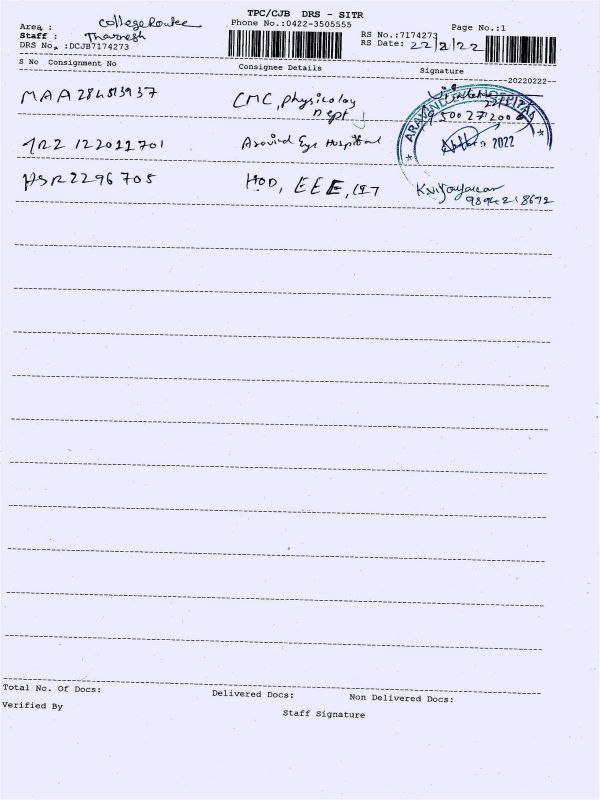 TPC/CJB DRS - SITR
Area : College Route
Phone No.:0422-3505555
Page No.:1
Staff : Tharnesh
RS No.:7174273
DRS No. :DCJB7174273
RS Date: 22/2/22
S No Consignment No
Consignee Details
Signature
--20220222--
CMC, physicoloy
Dept
9500272008
1RZ 122022701
Aravind Eye Hospital
2022
HSR2296705
HOD, EEE,
K.Vijayakar
9894218672
Total No. Of Docs:
Delivered Docs:
Non Delivered Docs:
Verified By
Staff Signature